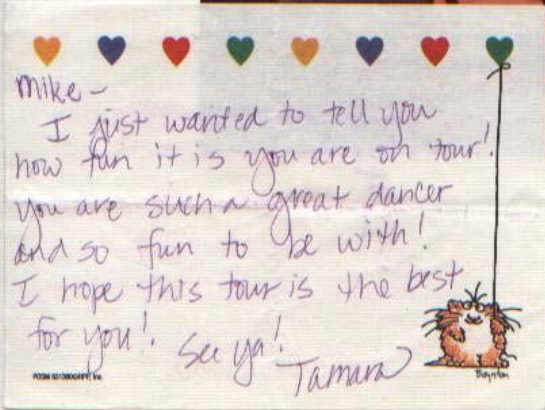 Mike -
I just wanted to tell you
how fun it is you are on tour!
you are such a great dancer
and so fun to be with!
I hope this tour is the best
for you! See ya!
Tamara
Boynton